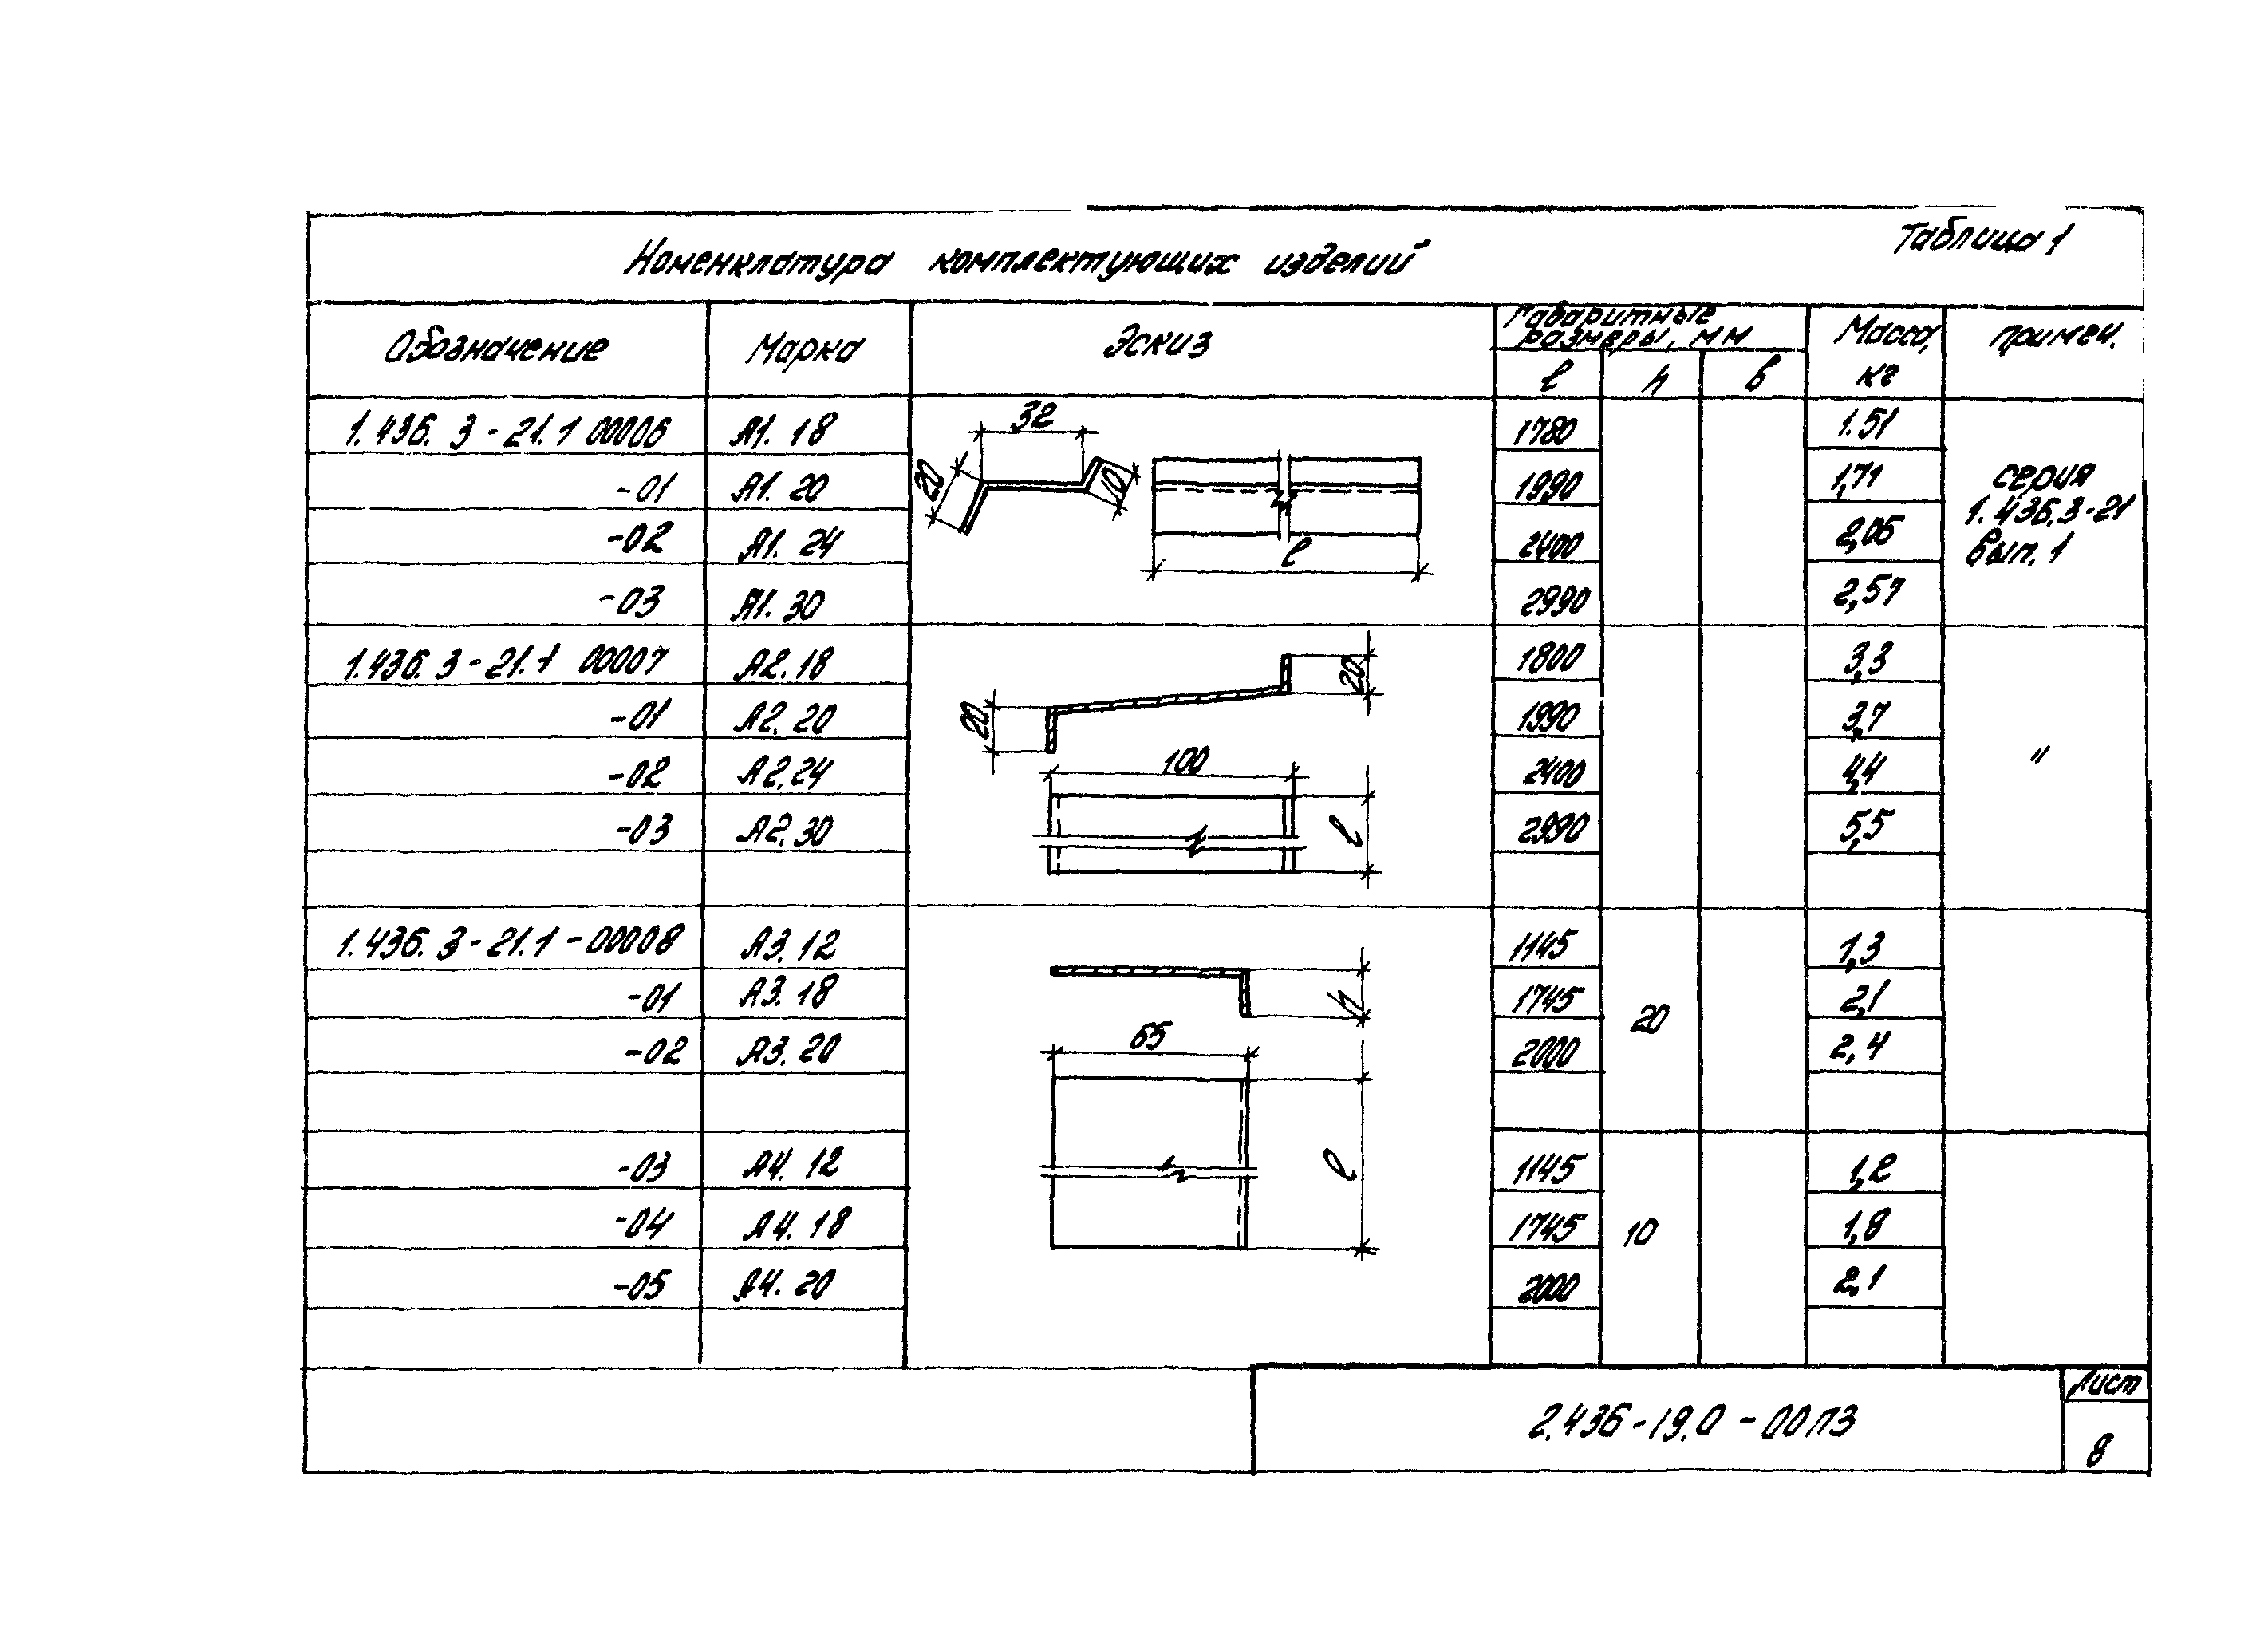 Таблица 1
Номенклатура комплектующих изделий
Обозначение Марка Эскиз Габаритные размеры, мм Масса, кг примеч.
l h b
1.436.3-21.1 00006 А1.18 1780 1.51
-01 А1.20 1990 1,71
-02 А1.24 2400 2,06
-03 А1.30 2990 2,57
32
20
10
l
серия
1.436.3-21
вып. 1
1.436.3-21.1 00007 А2.18 1800 3,3
-01 А2.20 1990 3,7
-02 А2.24 2400 4,4 "
-03 А2.30 2990 5,5
20
20
100
l
1.436.3-21.1-00008 А3.12 1145 1,3
-01 А3.18 1745 20 2,1
-02 А3.20 2000 2,4
h
65
-03 А4.12 1145 1,2
-04 А4.18 1745 10 1,8
-05 А4.20 2000 2,1
l
2.436-19.0-00ПЗ
Лист
8